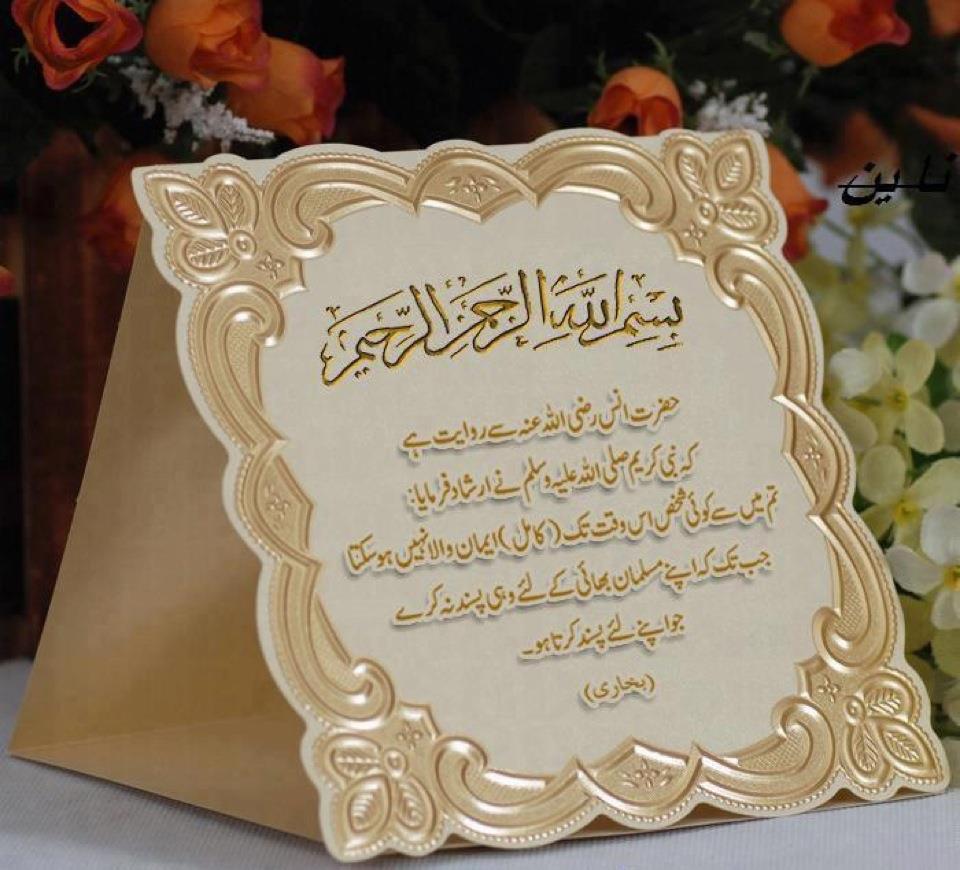 ناين
بسم الله الرحمن الرحيم
حضرت انس رضی اللہ عنہ سے روایت ہے
کہ نبی کریم صلی اللہ علیہ وسلم نے ارشاد فرمایا:
تم میں سے کوئی شخص اس وقت تک (کامل) ایمان والا نہیں ہو سکتا
جب تک کہ اپنے مسلمان بھائی کے لئے وہی پسند نہ کرے
جو اپنے لئے پسند کرتا ہو۔
(بخاری)